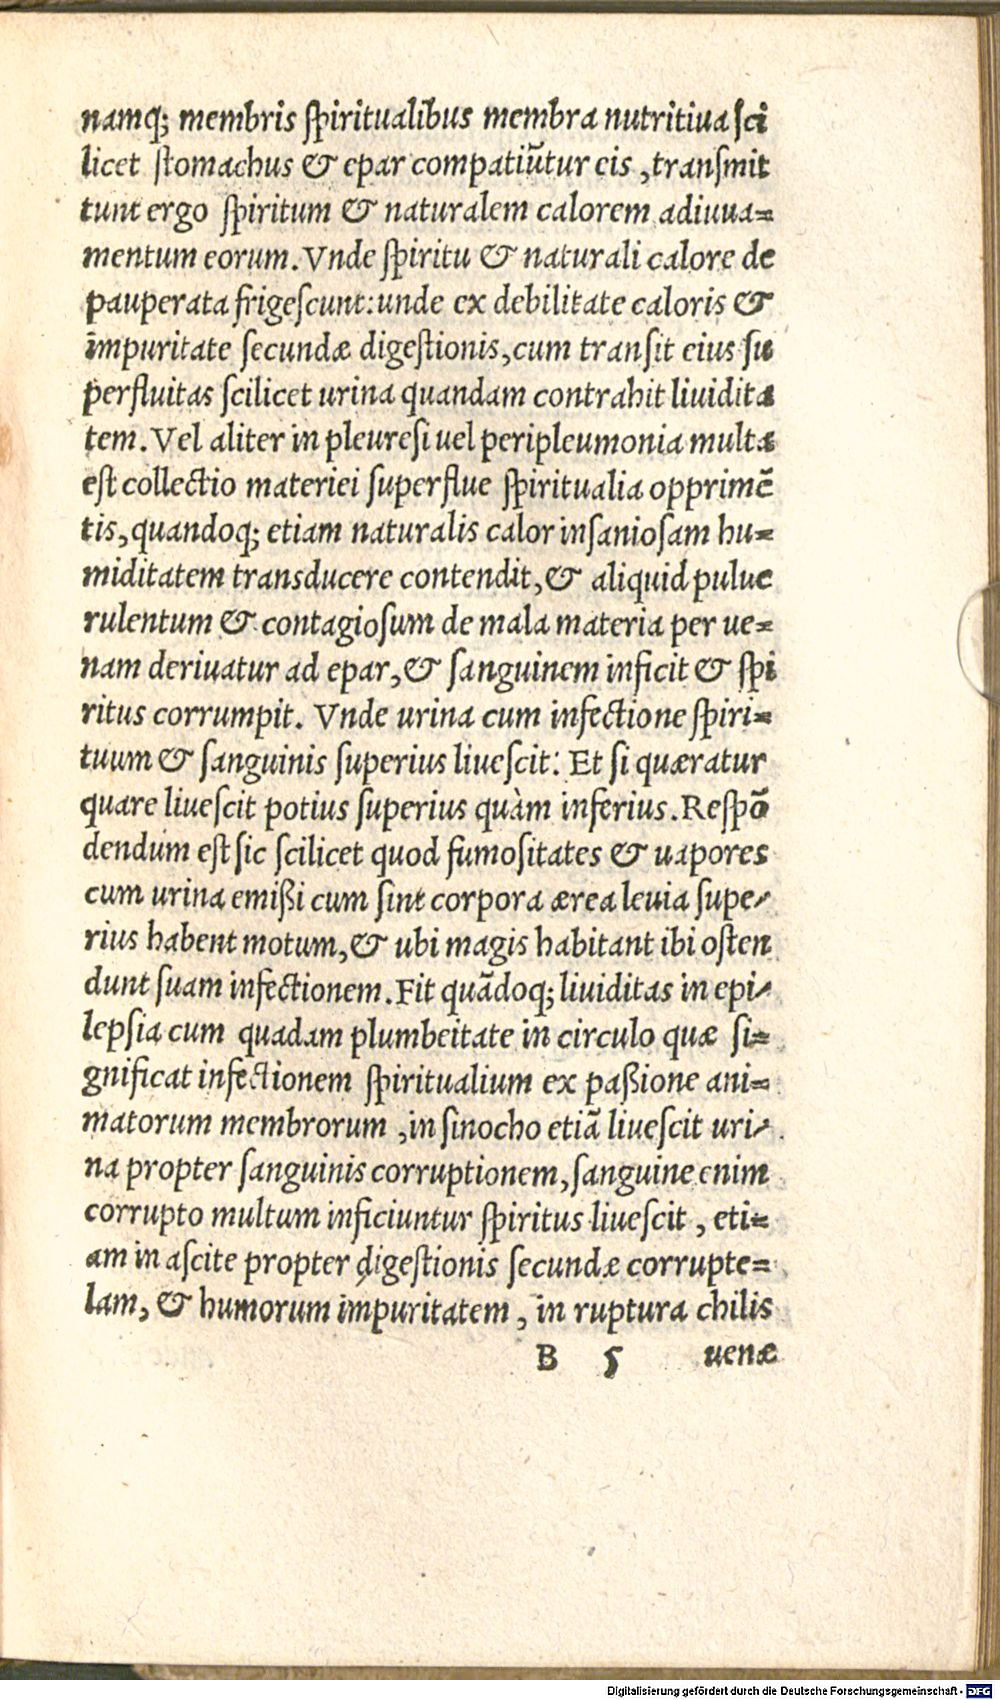 namq; membris ſpiritualibus membra nutritiua ſci
licet ſtomachus & epar compatiūtur eis, tranſmit
tunt ergo ſpiritum & naturalem calorem adiuua=
mentum eorum. Vnde ſpiritu & naturali calore de
pauperata frigeſcunt: unde ex debilitate caloris &
impuritate ſecundæ digeſtionis, cum tranſit eius ſu
perfluitas ſcilicet urina quandam contrahit liuidita
tem. Vel aliter in pleureſi uel peripleumonia multa
eſt collectio materiei ſuperflue ſpiritualia opprimē
tis, quandoq; etiam naturalis calor in ſanioſam hu=
miditatem transducere contendit, & aliquid pulue
rulentum & contagioſum de mala materia per ue=
nam deriuatur ad epar, & ſanguinem inficit & ſpi
ritus corrumpit. Vnde urina cum infectione ſpiri=
tuum & ſanguinis ſuperius liueſcit: Et ſi quæratur
quare liueſcit potius ſuperius quàm inferius. Reſpō
dendum eſt sic ſcilicet quod fumoſitates & uapores
cum urina emißi cum ſint corpora ærea leuia ſupe-
rius habent motum, & ubi magis habitant ibi oſten
dunt ſuam infectionem. Fit quādoq; liuiditas in epi-
lepſia cum quadam plumbeitate in circulo quæ ſi=
gnificat infectionem ſpiritualium ex paßione ani=
matorum membrorum, in ſinocho etiā liueſcit uri-
na propter ſanguinis corruptionem, ſanguine enim
corrupto multum inficiuntur ſpiritus liueſcit, eti=
am in aſcite propter digeſtionis ſecundæ corrupte=
lam, & humorum impuritatem, in ruptura chilis
B 5 uenæ
Digitalisierung gefördert durch die Deutsche Forschungsgemeinschaft - DFG